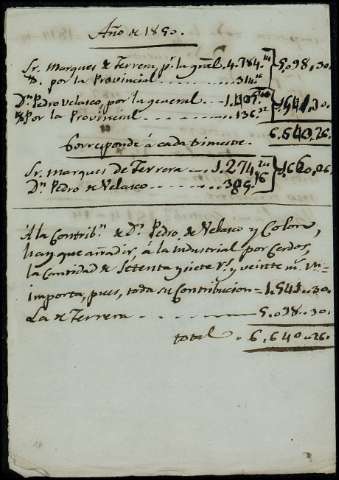 Año de 1850.
Sr. Marques de Ferrera, p.r la gral 4.784.. 5.098..30.
Yd. por la Provincial . . . . . . . 314.
Dn. Pedro Velasco, por la general . . . 1.541..30.
Yd. Por la Provincial . . . . . 136.
6.640..26.
Corresponde á cada trimestre.
Sr. Marques de Ferrera . . . 1.274
Dn. Pedro de Velasco . . . . . .
Á la Contribn. de Dn. Pedro de Velasco y Colore,
hay que añadir, á la industrial por Cerdos,
la Cantidad de Setenta y siete rs. y veinte ms. vn.
importa, pues, toda su Contribucion = 1.541..30.
La de Ferrera . . . . . . . . . . 5.098..30.
total. 6.640..26.